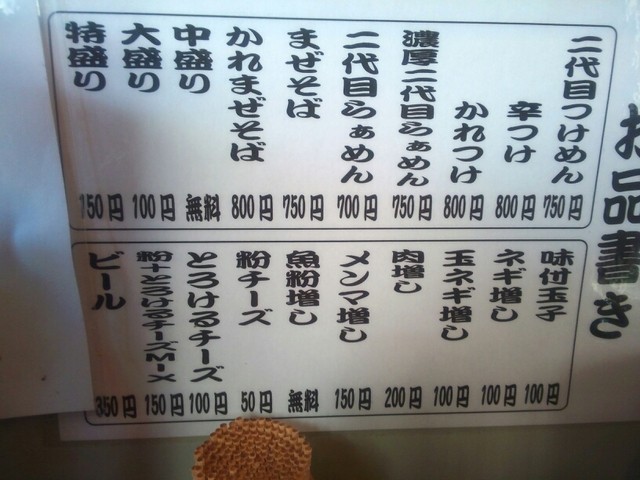 お品書き
二代目つけめん 750円
辛つけ 800円
かれつけ 800円
濃厚二代目らぁめん 750円
二代目らぁめん 700円
まぜそば 750円
かれまぜそば 800円
中盛り 無料
大盛り 100円
特盛り 150円
味付玉子 100円
ネギ増し 100円
玉ネギ増し 100円
肉増し 200円
メンマ増し 150円
魚粉増し 無料
粉チーズ 50円
とろけるチーズ 100円
粉+とろけるチーズMIX 150円
ビール 350円